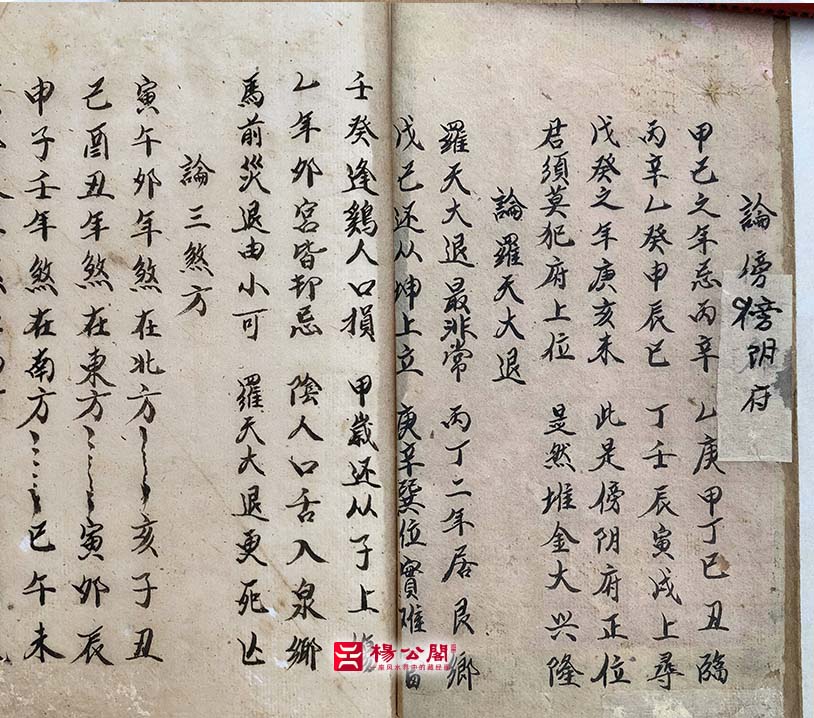 論傍傍阴府
甲己之年忌丙辛 乙庚甲丁巳丑臨
丙辛乙癸申辰巳 丁壬辰寅戌上尋
戊癸之年庚亥未 此是傍阴府正位
君須莫犯府上位 显然堆金大兴隆
論羅天大退
羅天大退最非常 丙丁二年居艮鄉
戊己还从坤上立 庚辛巽位實难
壬癸逢鷄人口損 甲歲还从子上
乙年卯宮皆却忌 陰人口舌入泉鄉
馬前災退由小可 羅天大退更死亡
論三煞方
寅午卯年煞在北方 亥子丑
己酉丑年煞在東方 寅卯辰
申子壬年煞在南方 巳午未
楊公閣